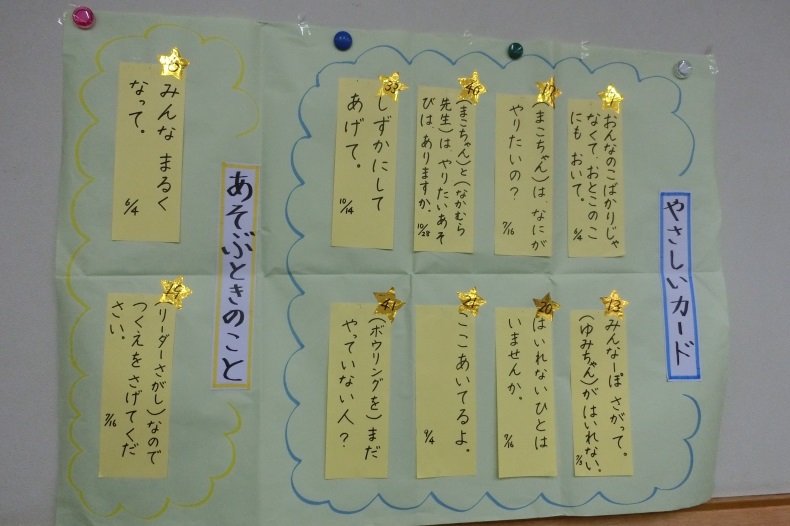 やさしいカード
おんなのこばかりじゃ
なくて、おとこのこ
にも おいて。
6/4
(まこちゃん)は、なにが
やりたいの?
7/16
(まこちゃん)と(なかむら
先生)は、やりたいあそ
びは、ありますか。
10/28
しずかにして
あげて。
10/14
みんな一ぽ さがって。
(ゆみちゃん)が はいれない。
はいれないひとは
いませんか。
7/16
ここ あいてるよ。
9/4
(ボウリングを)まだ
やっていない人?
あそぶときのこと
みんな まるく
なって。
6/4
(リーダーさがし)なので
つくえをさげてくだ
さい。
7/16